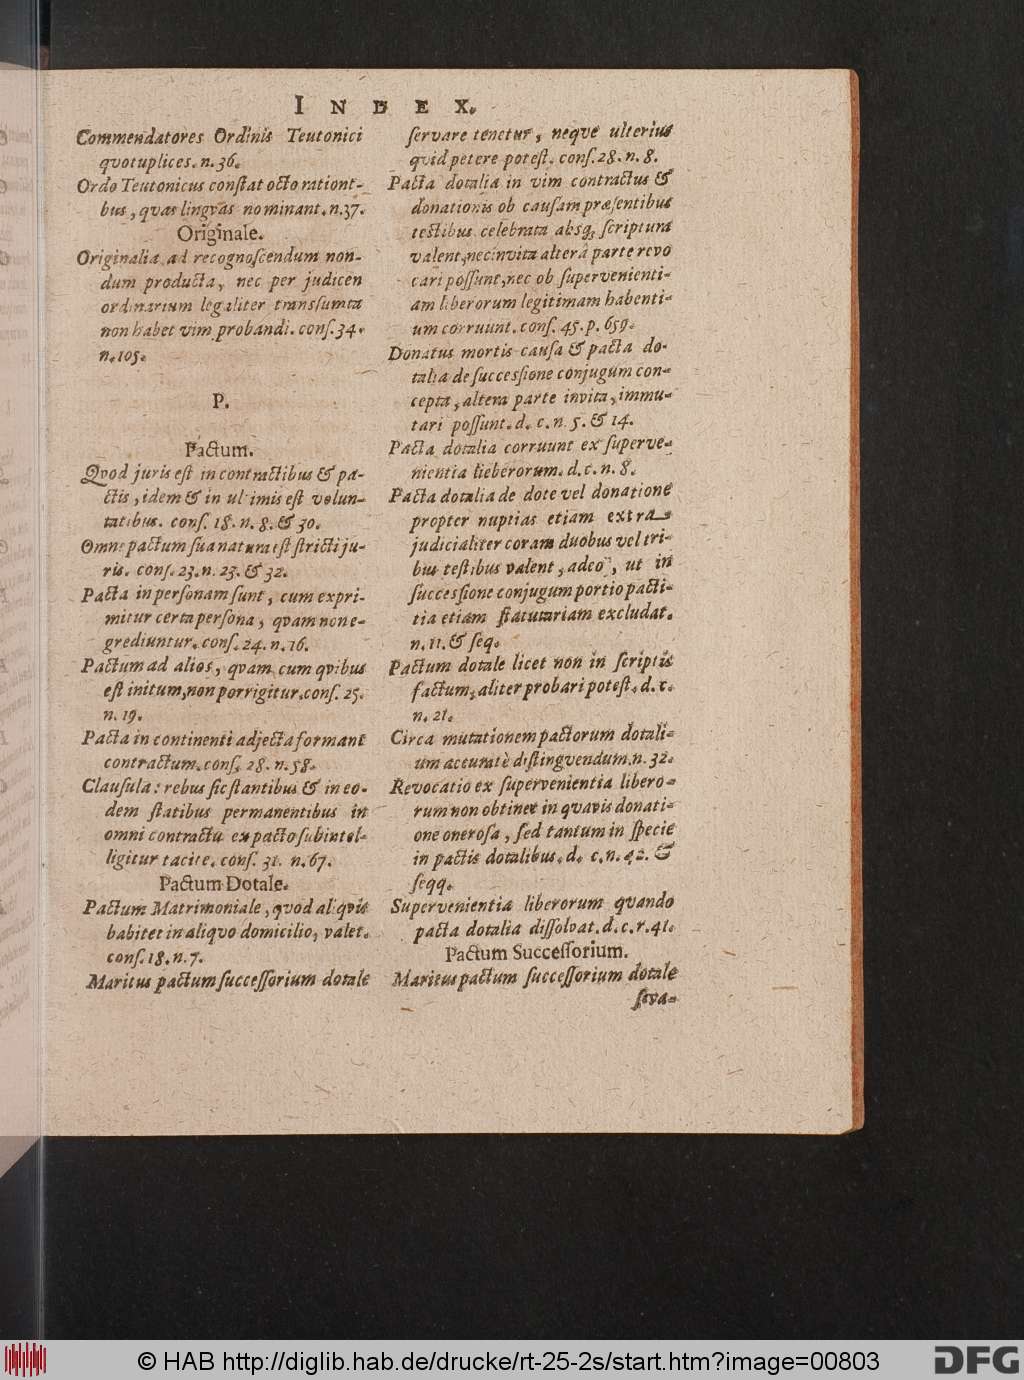 INDEX.
Commendatores Ordinis Teutonici
quotuplices. n. 36.
Ordo Teutonicus conſtat octo rationi-
bus, qvas lingvas nominant. n. 37.
Originale.
Originalia ad recognoſcendum non-
dum producta, nec per judicen
ordinarium legaliter transſumta
non habet vim probandi. conſ. 34.
n. 105.
P.
Pactum.
Qvod juris eſt in contractibus & pa-
ctis, idem & in ultimis eſt volun-
tatibus. conſ. 18. n. 8. & 30.
Omne pactum sua natura eſt ſtricti ju-
ris. conſ. 23. n. 23. & 32.
Pacta in perſonam ſunt, cum expri-
mitur certa perſona, qvam non e-
grediuntur. conſ. 24. n. 16.
Pactum ad alios, qvam cum qvibus
eſt initum, non porrigitur. conſ. 25.
n. 19.
Pacta in continenti adjecta formant
contractum. conſ. 28. n. 58.
Clauſula: rebus ſic ſtantibus & in eo-
dem ſtatibus permanentibus in
omni contractu ex pacto ſubintel-
ligitur tacite. conſ. 31. n. 67.
Pactum Dotale.
Pactum Matrimoniale, qvod aliqvis
habitet in aliqvo domicilio, valet.
conſ. 18. n. 7.
Maritus pactum ſucceſſorium dotale
ſervare tenetur, neqve ulterius
quid petere poteſt. conſ. 28. n. 8.
Pacta dotalia in vim contractus &
donationis ob cauſam præſentibus
teſtibus celebrata absq; ſcriptura
valent, nec invita altera parte revo
cari poſſunt, nec ob ſupervenienti-
am liberorum legitimam habenti-
um corruunt. conſ. 45. p. 659.
Donatus mortis cauſa & pacta do-
talia de ſucceſſione conjugum con-
cepta, altera parte invita, immu-
tari poſſunt. d. c. n. 5. & 14.
Pacta dotalia corruunt ex ſuperve-
nientia lieberorum. d. c. n. 8.
Pacta dotalia de dote vel donatione
propter nuptias etiam extra-
judicialiter coram duobus vel tri-
bus teſtibus valent, adeo, ut in
ſucceſſione conjugum portio pacti-
tia etiam ſtatutariam excludat.
n. 11. & ſeq.
Pactum dotale licet non in ſcriptis
factum, aliter probari poteſt. d. c.
n. 21.
Circa mutationem pactorum dotali-
um accuratè diſtingvendum. n. 32.
Revocatio ex ſupervenientia libero-
rum non obtinet in qvavis donati-
one oneroſa, ſed tantum in ſpecie
in pactis dotalibus. d. c. n. 42. &
ſeqq.
Supervenientia liberorum qvando
pacta dotalia diſſolvat. d. c. r. 41.
Pactum Succeſſorium.
Maritus pactum ſucceſſorium dotale
ſerva-
© HAB http://diglib.hab.de/drucke/rt-25-2s/start.htm?image=00803
DFG